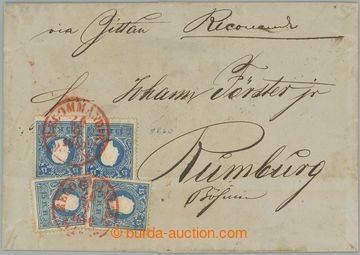 via Zittau Recomand
Johann Förster jr
1860
Rumburg
Böhmen
RECOMMANDIRT
burda-auction.com